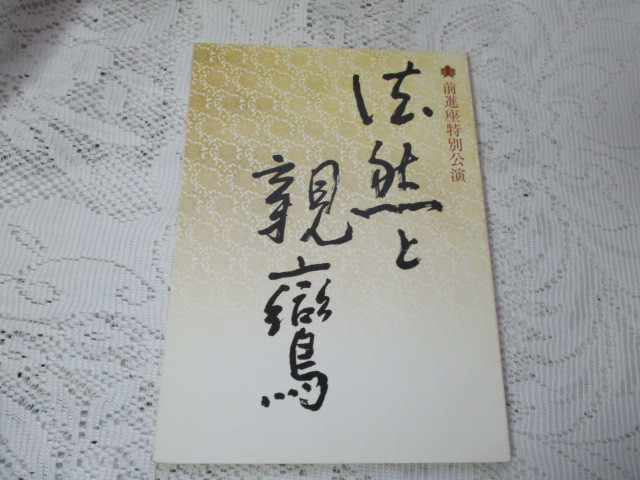 前進座特別公演
法然と
親鸞